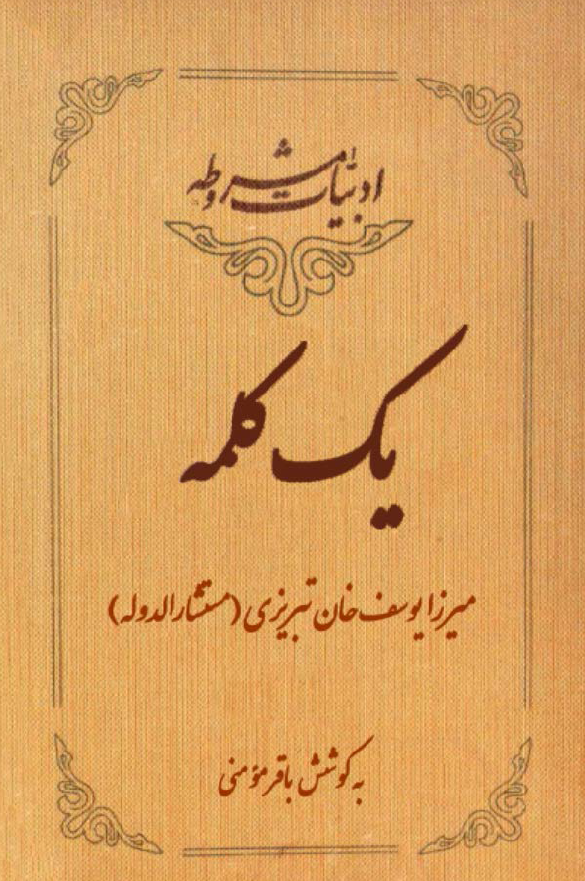 ادبیات مشروطه
یک کلمه
میرزا یوسف خان تبریزی (مستشارالدوله)
به کوشش باقر مؤمنی